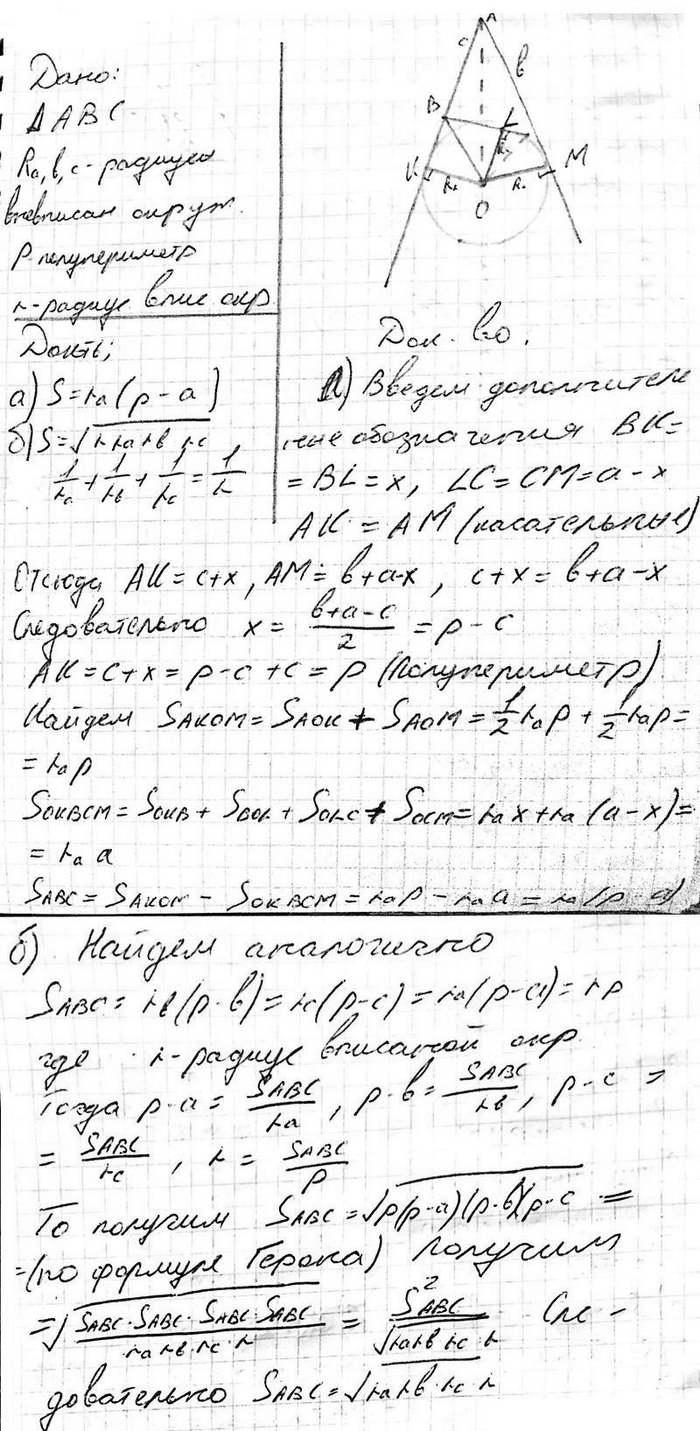 Дано:
Δ ABC
Ra,b,c - радиусы
вневписан окруж.
p полупериметр
r - радиус впис окр
Док-ть;
а) S = ra(p - a)
б) S = √r ra rb rc
1/ra + 1/rb + 1/rc = 1/r
A
c
b
B
L
K
M
O
Док-во.
а) Введем дополнитель
ные обозначения BK =
= BL = x, LC = CM = a - x
AK = AM (касательные)
Отсюда AK = c+x, AM = b+a-x, c+x = b+a-x
Следовательно x = (b+a-c)/2 = p - c
AK = c+x = p-c+c = p (Полупериметр)
Найдем SAKOM = SAOK + SAOM = 1/2 ra p + 1/2 ra p =
= ra p
SOKBCM = SOKB + SBOL + SOLC + SOCM = ra x + ra (a-x) =
= ra a
SABC = SAKOM - SOKBCM = ra p - ra a = ra(p - a)
б) Найдем аналогично
SABC = rb(p-b) = rc(p-c) = ra(p-a) = rp
где r - радиус вписаной окр
Тогда p-a = SABC/ra, p-b = SABC/rb, p-c =
= SABC/rc, r = SABC/p
То получим SABC = √p(p-a)(p-b)(p-c =
=(по формуле Герона) Получим
= √SABC·SABC·SABC·SABC/ra·rb·rc·r = S²ABC/√ra rb rc r Сле -
довательно SABC = √ra rb·rc·r